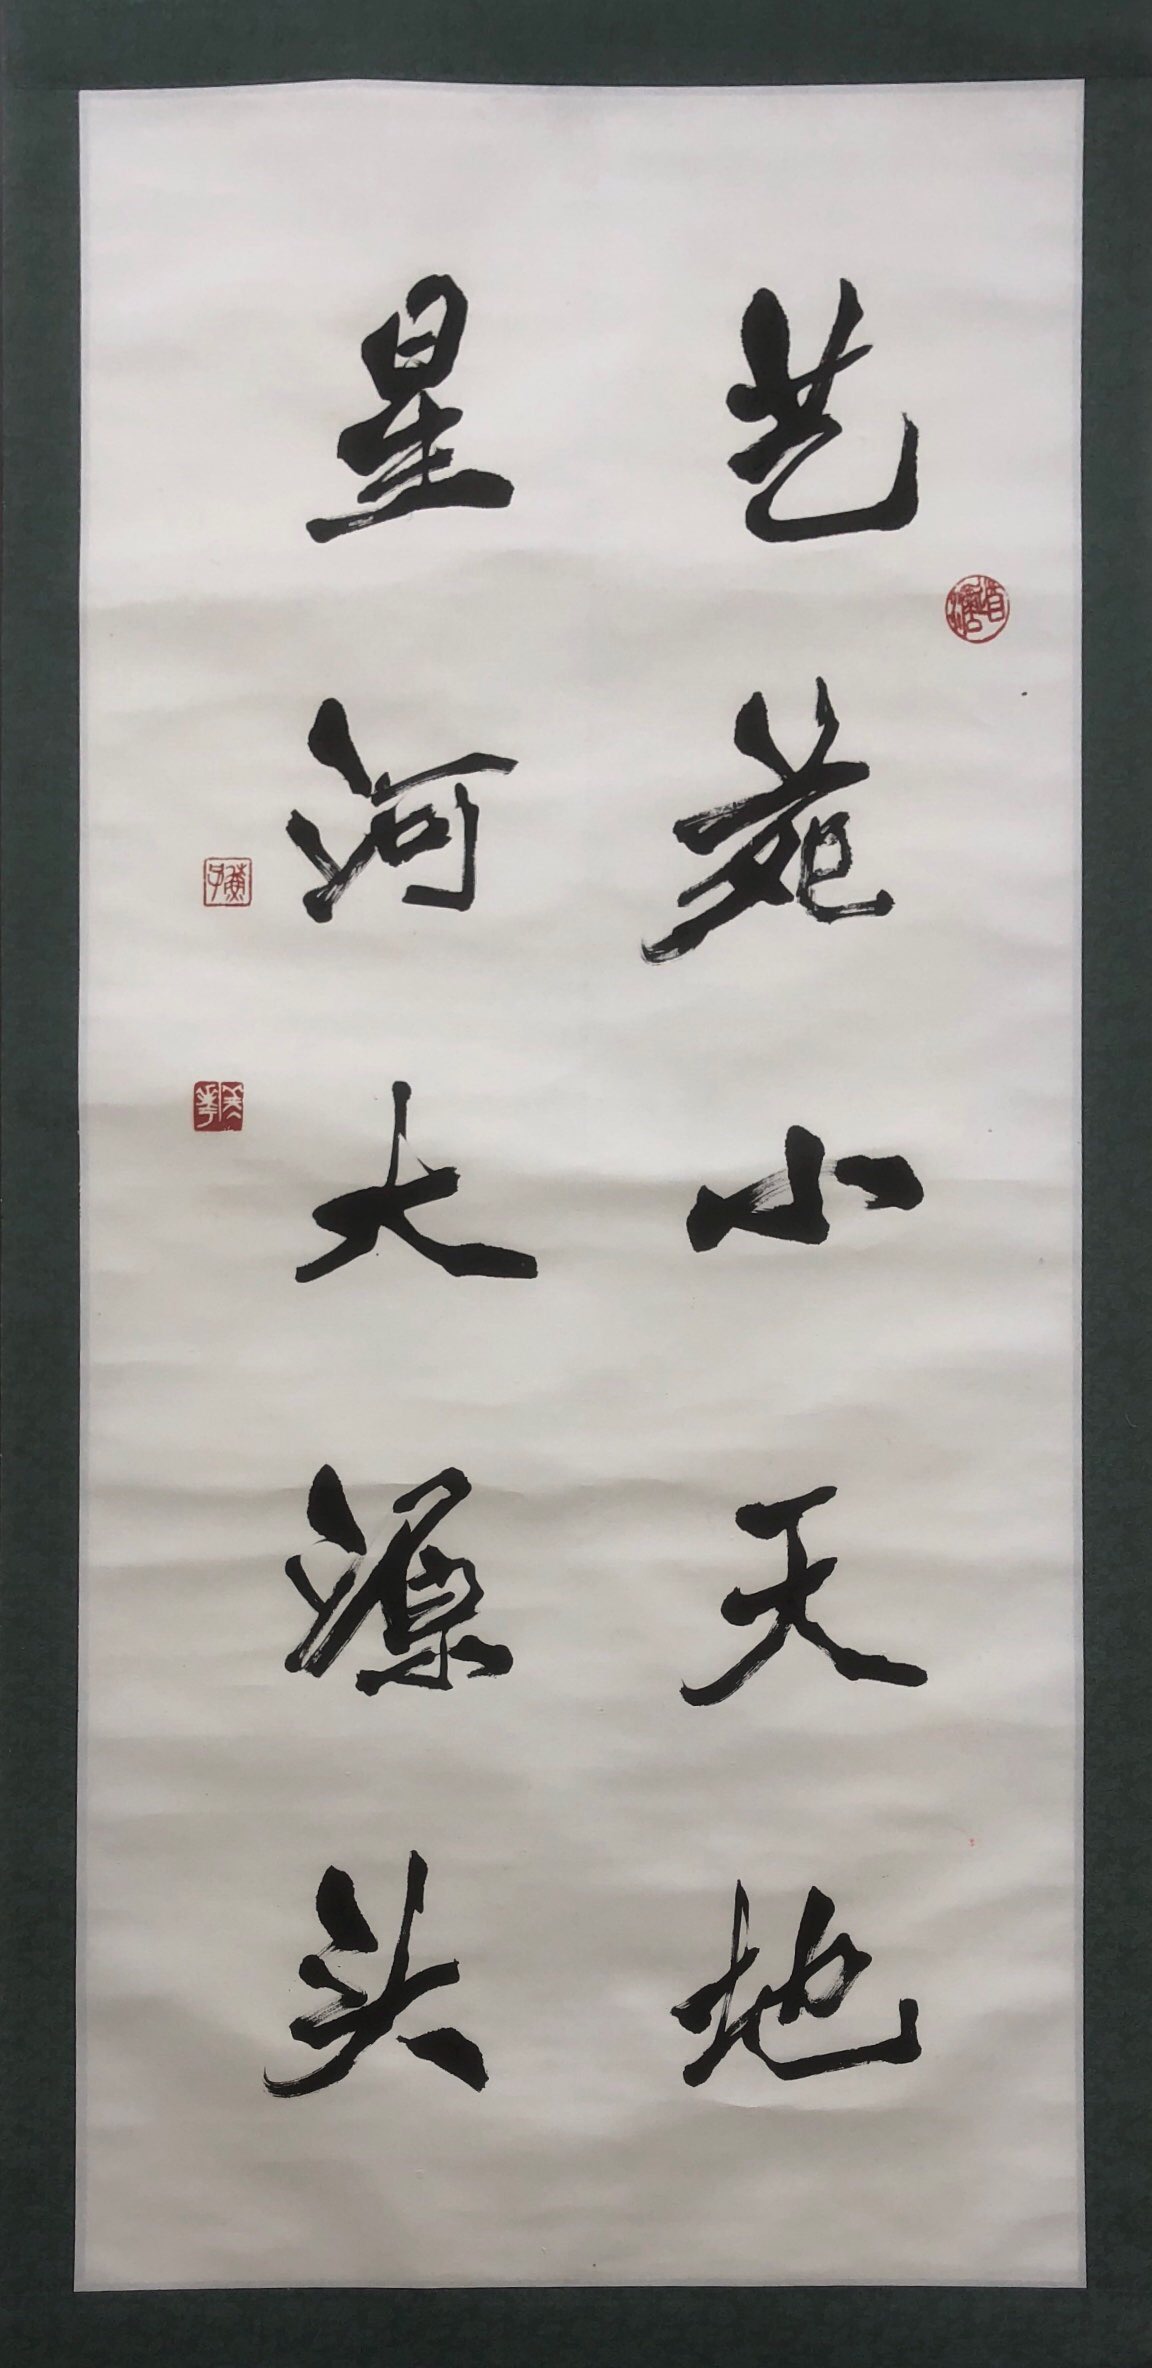 艺苑小天地
星河大源头